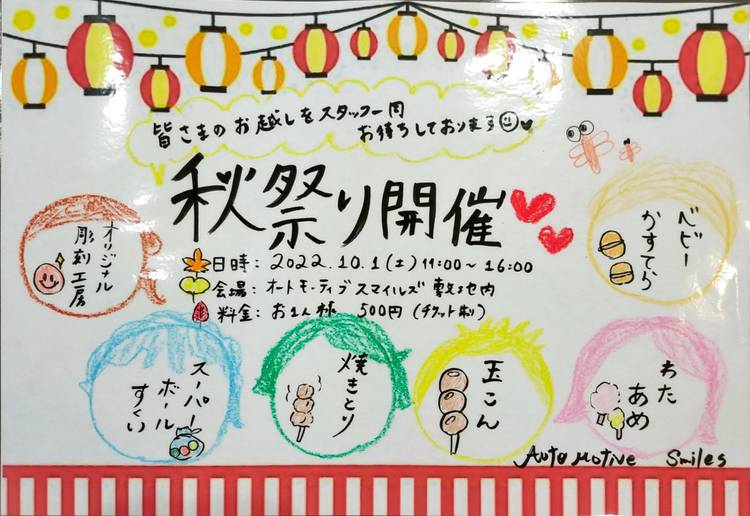 皆さまのお越しをスタッフ一同
お待ちしております
秋祭り開催
日時: 2022.10.1(土) 11:00~16:00
会場: オートモーティブスマイルズ敷地内
料金: お1人様 500円(チケット制)
オリジナル
彫刻工房
ベビー
かすてら
スーパー
ボール
すくい
焼きとり
玉こん
わた
あめ
Automotive Smiles